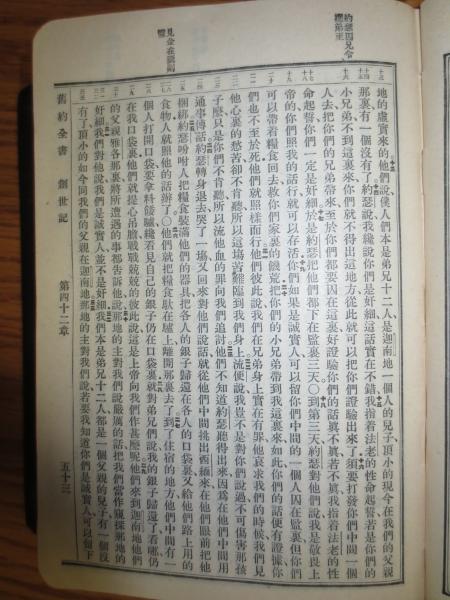 約瑟囚兄令攜弟至
見金在囊而驚
地的虛實來的他們說僕人們本是弟兄十二人是迦南地一個人的兒子頂小的現今在我們的父親
那裏有一個沒有了約瑟說我纔說你們是奸細這話實在不錯我指着法老的性命起誓若是你們的
小兄弟不到這裏來你們就不得出這地方從此就可以把你們證驗出來了須要打發你們中間一個
人去把你們的兄弟帶來至於你們都要囚在這裏好證驗你們的話眞不眞若不眞我指着法老的性
命起誓你們一定是奸細於是約瑟把他們都下在監裏三天○到第三天約瑟對他們說我是敬畏上
帝的你們照我的話行就可以存活你們如果是誠實人可以留你們中間的一個人囚在監裏但你們
可以帶着糧食回去救你們家裏的饑荒把你們的小兄弟帶到我這裏來如此你們的話便有證據你
們也不至於死他們就照樣而行他們彼此說我們在兄弟身上實在有罪他哀求我們的時候我們見
他心裏的愁苦卻不肯聽所以這場苦難臨到我們身上流便說我豈不是對你們說過不可傷害那孩
子麼只是你們不肯聽所以流他血的罪向我們追討他們不知道約瑟聽得出來因爲在他們中間用
通事傳話約瑟轉身退去哭了一塲又回來對他們說話就從他們中間挑出西緬來在他們眼前把他
捆綁約瑟吩咐人把糧食裝滿他們的器具把各人的銀子歸還在各人的口袋裏又給他們路上用的
食物人就照他的話辦了○他們就把糧食馱在驢上離開那裏去了到了住宿的地方他們中間有一
個人打開口袋要拿料餧驢纔看見自己的銀子仍在口袋裏就對弟兄們說我的銀子歸還了看哪仍
在我口袋裏他們就提心吊膽戰戰兢兢的彼此說這是上帝向我們作甚麼呢他們來到迦南地他們
的父親雅各那裏將所遭遇的事都告訴他說那地的主對我們說嚴厲的話把我們當作窺探那地的
奸細我們對他說我們是誠實人並不是奸細我們本是弟兄十二人都是一個父親的兒子有一個沒
有了頂小的如今同我們的父親在迦南地那地的主對我們說若要我知道你們是誠實人可以留下
舊約全書　創世記　第四十二章　五十三